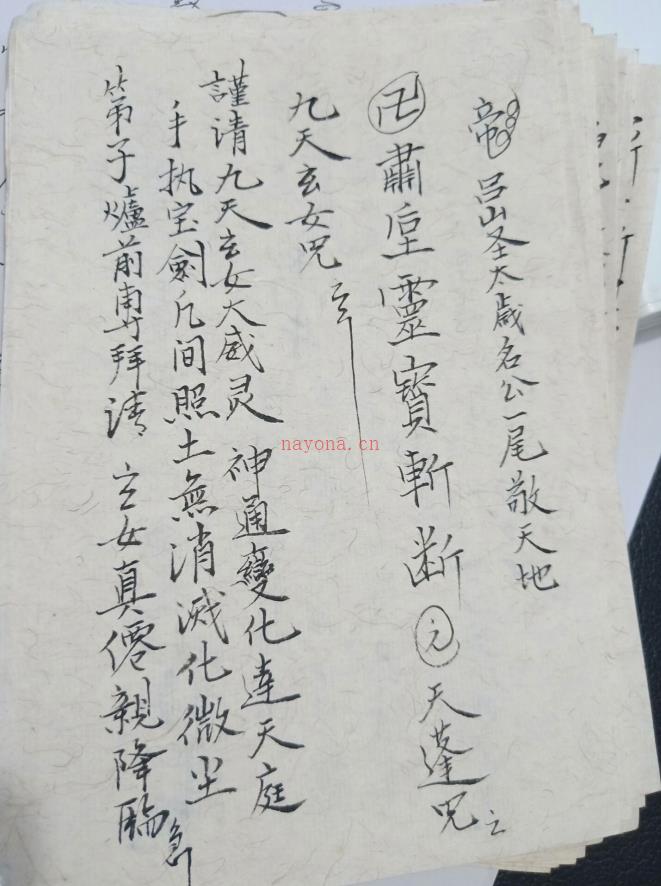 帝 吕山圣太歳名公一尾敬天地
卍 肅皇靈寳斬断 天蓬咒
九天玄女咒
謹请九天玄女大威灵 神通變化連天庭
手执宝劍凡间照 土無消滅化微尘
第子爐前專拜请 玄女真僊親降臨
nayona.cn